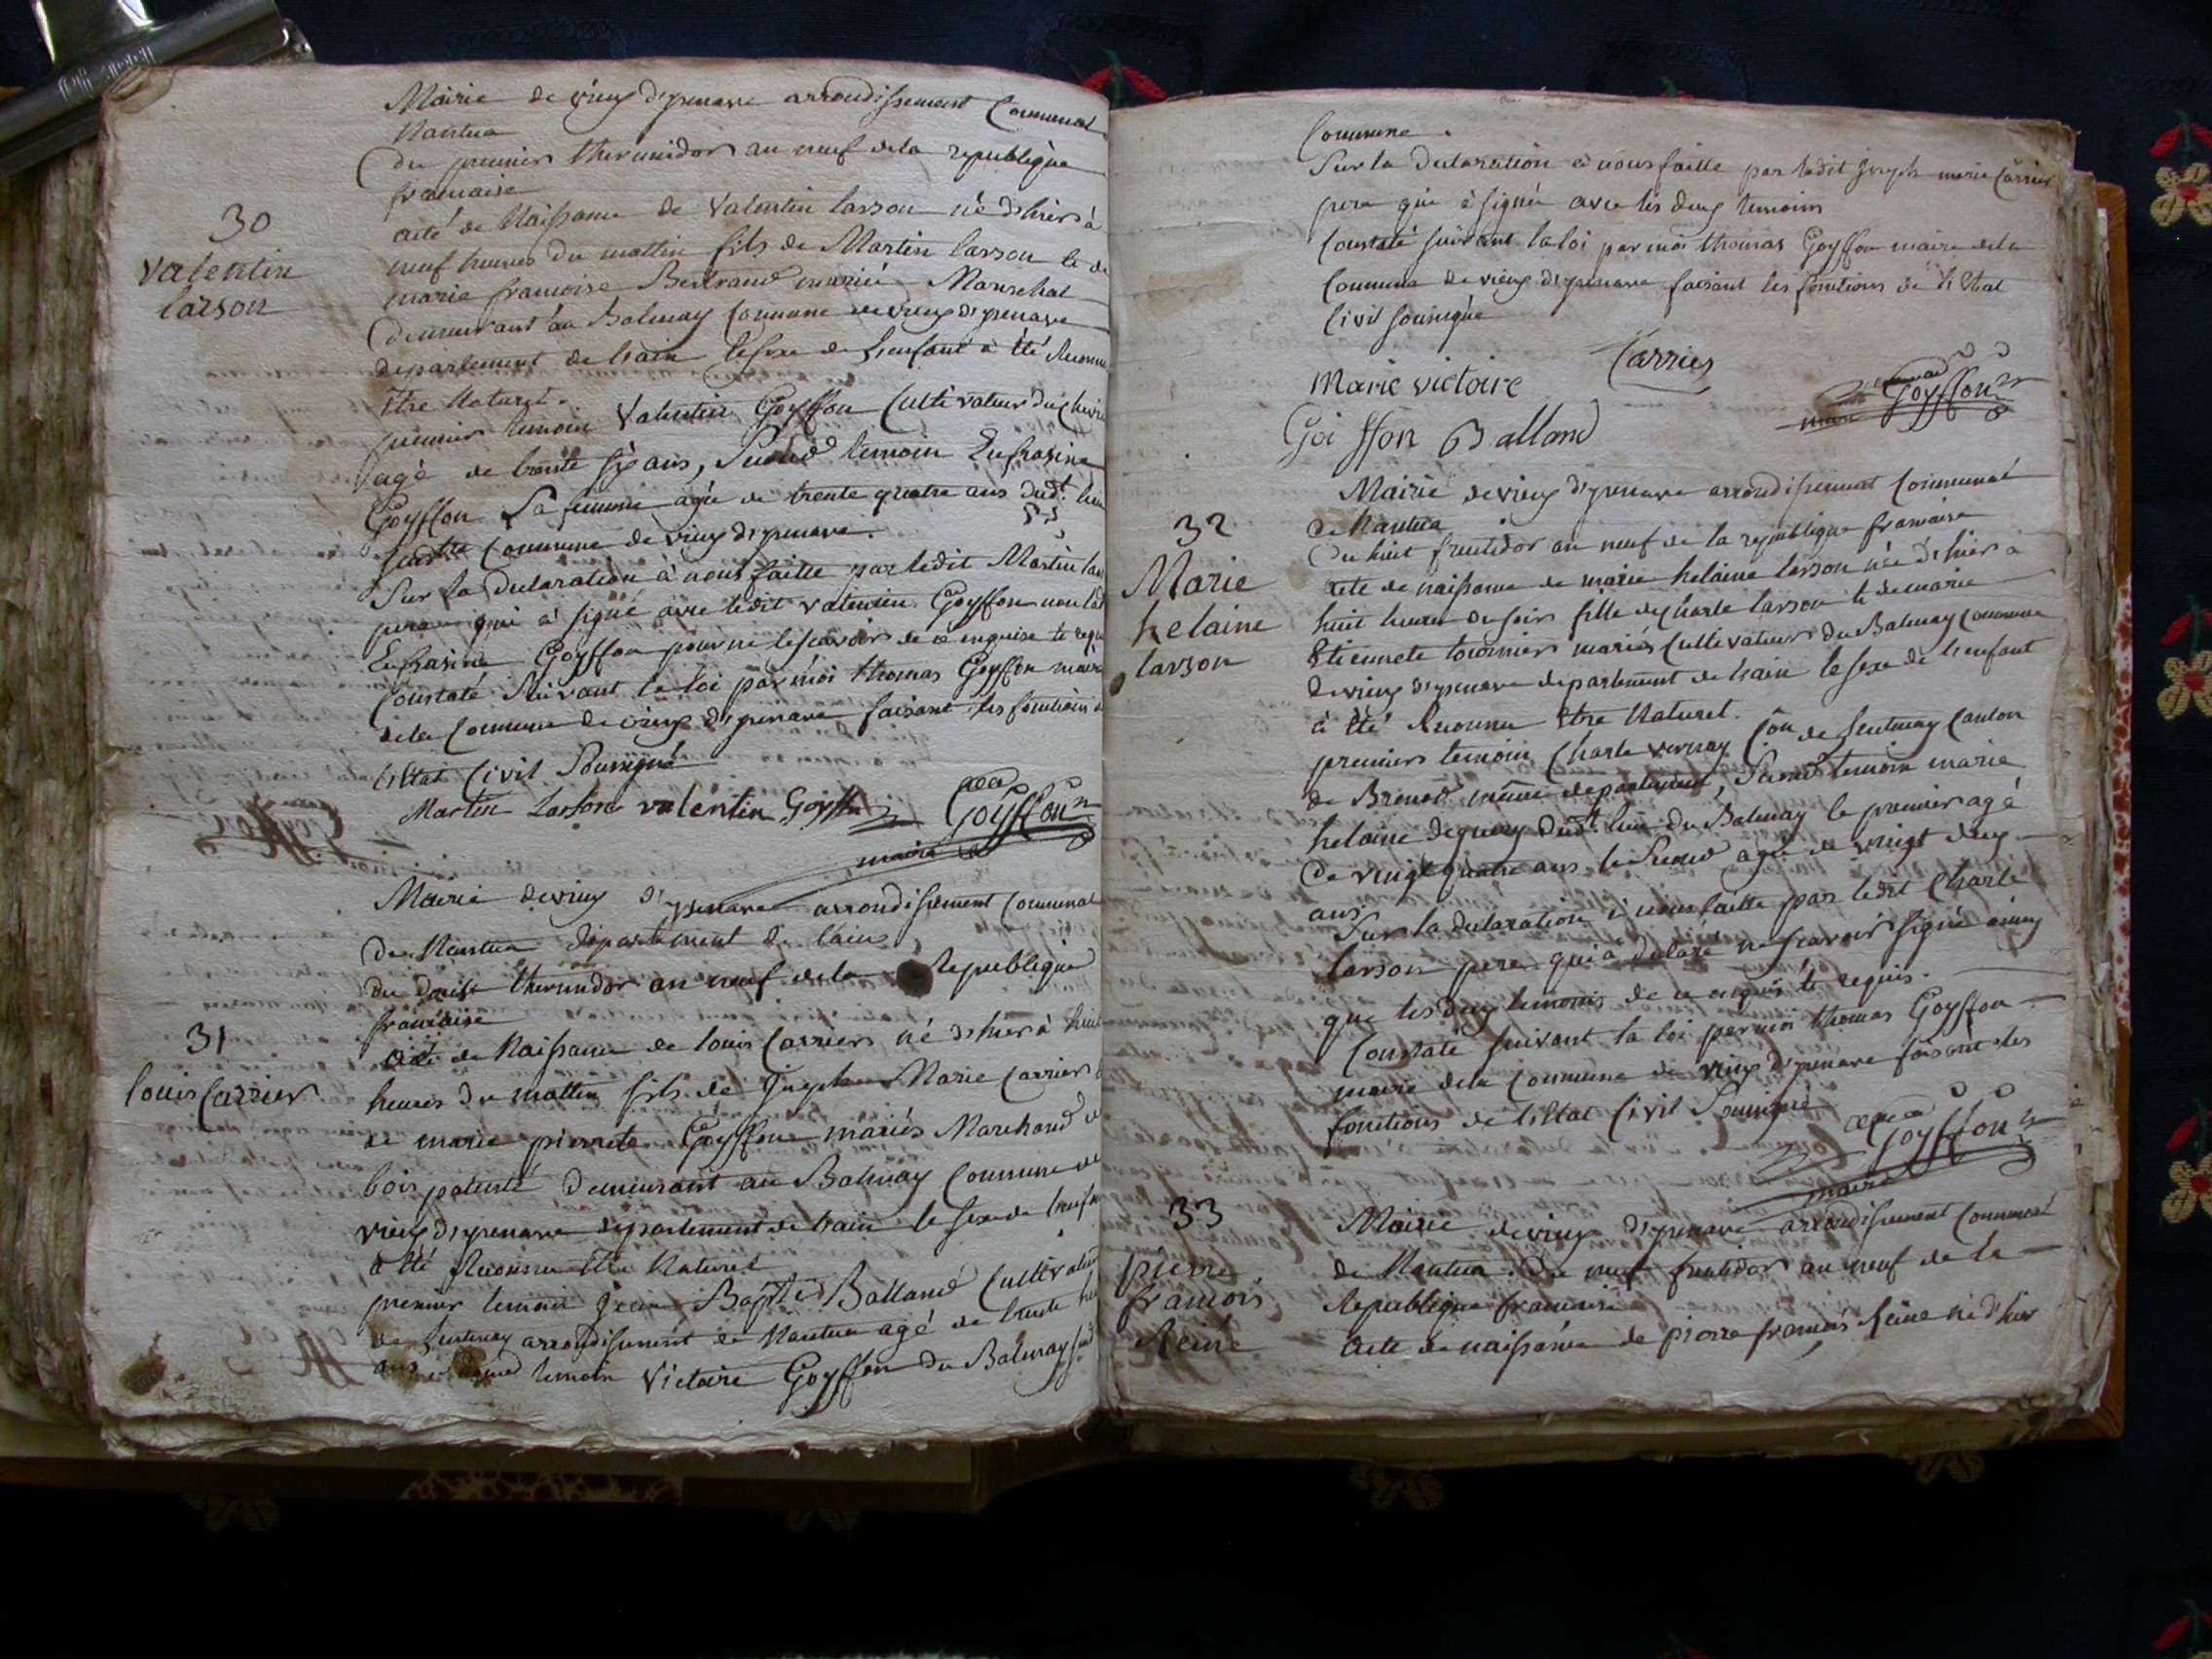 Mairie de vieux d'ysenave arrondissement Communal
Nantua
Du premier thermidor an neuf de la republique
francaise
acte de Naissance de Valentin larson né d'hier à
30
Valentin
larson
neuf heures du mattin fils de Martin larson et de
marie francoise Bertrand mariés Mareschal
Demeurant au Balmay Commune de vieux d'ysenave
departement de lain le sexe de l'enfant à été Reconnu
Etre Naturel.
premier temoin Valentin Goyffon Cultivateur du
agé de trente six ans, Second temoin Eufrasine
Goyffon Sa femme agée de trente quatre ans dudt. lieu
susdte Commune de vieux d'ysenave.
Sur la Declaration à nous faitte par ledit Martin
pere qui à signé avec ledit valentin Goyffon non
Eufrasine Goyffon pour ne le scavoir de ce enquise et
Constaté Suivant la loi par moi thomas Goyffon maire
de la Commune de vieux d'ysenave faisant les fonctions de
l'Etat Civil Soussigné
Martin Larson valentin Goyffon Goyffon
maire
Mairie de vieux d'ysenave arrondissement Communal
de Nantua departement de lain
du douze thermidor an neuf de la Republique
francaise
31
louis Carrier
acte de Naissance de louis Carrier né d'hier à huit
heures du mattin fils de Joseph Marie Carrier
de marie pierrete Goyffon mariés Marchand de
bois patenté Demeurant au Balmay Commune de
vieux d'ysenave departement de lain le sexe de
à été Reconnu Etre Naturel
premier temoin Jean Baptte Balland Cultivateur
de arrondissement de Nantua agé de trente
ans Second temoin Victoire Goyffon du Balmay
Commune.
Sur la Declaration à nous faitte par ledit joseph marie Carrier
pere qui à signé avec les deux temoins
Constaté suivant la loi par moi thomas Goyffon maire de la
Commune de vieux d'ysenave faisant les fonctions de l'Etat
Civil soussigné
Carrier
Marie victoire
Goiffon Balland
Goyffon
maire
Mairie de vieux d'ysenave arrondissement Communal
de Nantua
32
Marie
helaine
larson
Du huit fructidor an neuf de la republique francaise
acte de naissance de marie helaine larson née d'hier à
huit heures du soir fille de Charle larson et de marie
Etiennete tournier mariés Cultivateurs du Balmay Commune
de vieux d'ysenave departement de lain le sexe de l'enfant
à été Reconnu Etre Naturel.
premier temoin Charle vernay de Canton
de Brenod même departement, Second temoin marie
helaine dudt. lieu du Balmay le premier agé
De vingt quatre ans le Second agée de vingt deux
ans
Sur la declaration à nous faitte par ledit Charle
larson pere qui à déclaré ne scavoir signé ainsy
que les deux temoins de ce enquis et requis.
Constaté suivant la loi par moi thomas Goyffon
maire de la Commune de vieux d'ysenave faisant les
fonctions de l'Etat Civil Soussigné
Goyffon
maire
33
pierre
francois
Reine
Mairie de vieux d'ysenave arrondissement Communal
de Nantua. Du neuf fructidor an neuf de la
Republique francaise
Acte de naissance de pierre francois Reine né d'hier